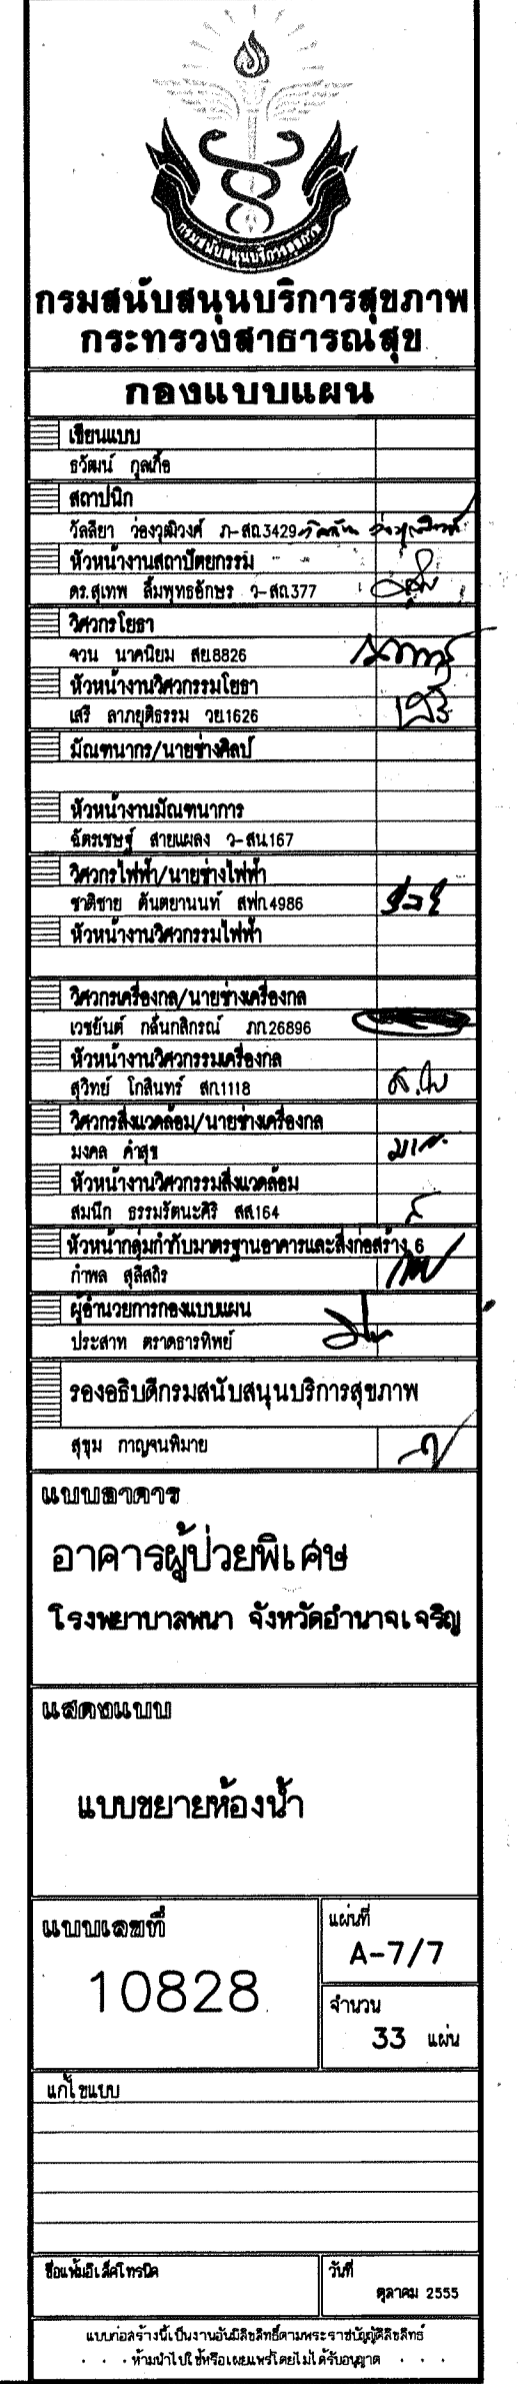 กรมสนับสนุนบริการสุขภาพ
กรมสนับสนุนบริการสุขภาพ
กระทรวงสาธารณสุข
กองแบบแผน
เขียนแบบ
ธวัฒน์ กูลเกื้อ
สถาปนิก
วัลลิยา ว่องวุฒิวงศ์ ภ-สถ.3429
หัวหน้างานสถาปัตยกรรม
ดร.สุเทพ ลิ้มพุทธอักษร ว-สถ.377
วิศวกรโยธา
จวน นาคนิยม สย.8826
หัวหน้างานวิศวกรรมโยธา
เสรี ลาภยุติธรรม วย.1626
มัณฑนากร/นายช่างศิลป์
หัวหน้างานมัณฑนาการ
ฉัตรเชษฐ์ สายแผลง ว-สน.167
วิศวกรไฟฟ้า/นายช่างไฟฟ้า
ชาติชาย ตันตยานนท์ สฟก.4986
หัวหน้างานวิศวกรรมไฟฟ้า
วิศวกรเครื่องกล/นายช่างเครื่องกล
เวชยันต์ กลั่นกสิกรณ์ ภก.26896
หัวหน้างานวิศวกรรมเครื่องกล
สุวิทย์ โกสินทร์ สก.1118
วิศวกรสิ่งแวดล้อม/นายช่างเครื่องกล
มงคล คำสุข
หัวหน้างานวิศวกรรมสิ่งแวดล้อม
สมนึก ธรรมรัตนะศิริ สส.164
หัวหน้ากลุ่มกำกับมาตรฐานอาคารและสิ่งก่อสร้าง 6
กำพล สุสิสถิร
ผู้อำนวยการกองแบบแผน
ประสาท ตราดธารทิพย์
รองอธิบดีกรมสนับสนุนบริการสุขภาพ
สุขุม กาญจนพิมาย
แบบอาคาร
อาคารผู้ป่วยพิเศษ
โรงพยาบาลพนา จังหวัดอำนาจเจริญ
แสดงแบบ
แบบขยายห้องน้ำ
แบบเลขที่
10828
แผ่นที่
A-7/7
จำนวน
33 แผ่น
แก้ไขแบบ
ชื่อแฟ้มอิเล็คโทรนิค
วันที่
ตุลาคม 2555
แบบก่อสร้างนี้เป็นงานอันมีลิขสิทธิ์ตามพระราชบัญญัติลิขสิทธ์
ห้ามนำไปใช้หรือเผยแพร่โดยไม่ได้รับอนุญาต